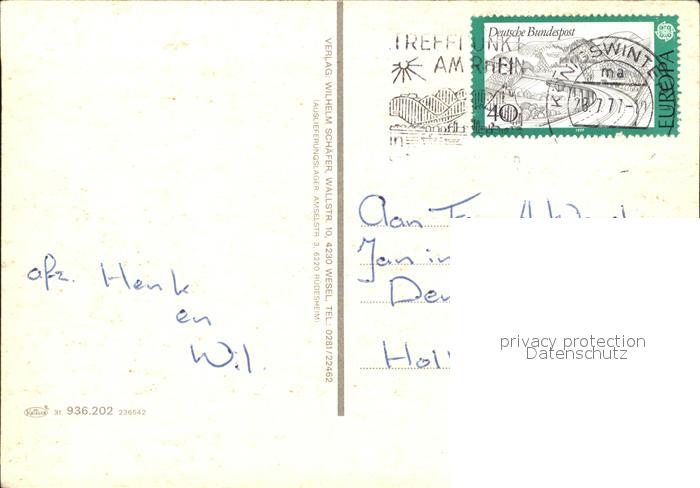 Deutsche Bundespost
EUROPA
40
TREFFPUNKT
AM RHEIN
KÖNIGSWINTER
ma
28.7.77
VERLAG: WILHELM SCHÄFER, WALLSTR. 10, 4230 WESEL, TEL.: 0281/22462
(AUSLIEFERUNGSLAGER: AMSELSTR. 3, 6220 RÜDESHEIM)
Aan Fam
Jan
Holl
afz. Henk
en
Wil.
privacy protection
Datenschutz
31 936.202 236542